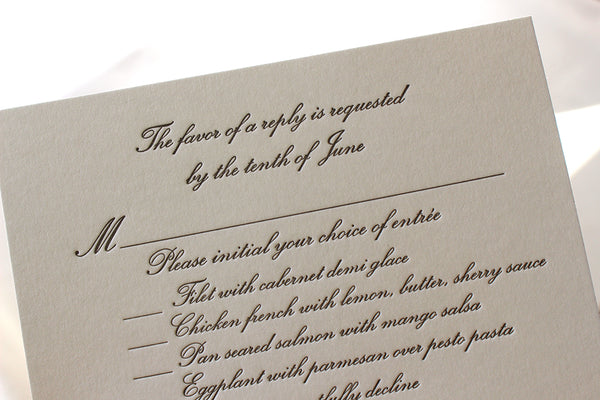 The favor of a reply is requested
by the tenth of June
M
Please initial your choice of entrée
Filet with cabernet demi glace
Chicken french with lemon, butter, sherry sauce
Pan seared salmon with mango salsa
Eggplant with parmesan over pesto pasta
decline